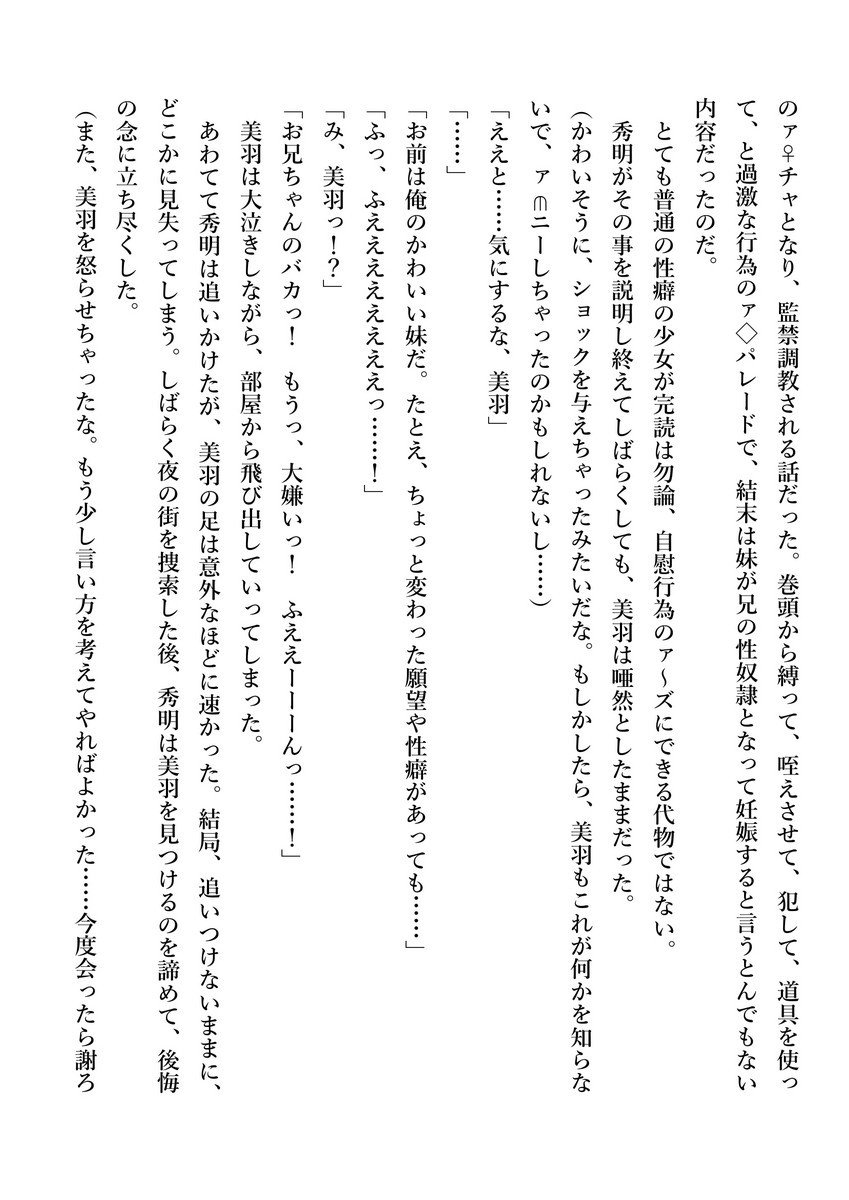 のァ♀チャとなり、監禁調教される話だった。巻頭から縛って、咥えさせて、犯して、道具を使っ
て、と過激な行為のァ◇パレードで、結末は妹が兄の性奴隷となって妊娠すると言うとんでもない
内容だったのだ。
とても普通の性癖の少女が完読は勿論、自慰行為のァ～ズにできる代物ではない。
秀明がその事を説明し終えてしばらくしても、美羽は唖然としたままだった。
(かわいそうに、ショックを与えちゃったみたいだな。もしかしたら、美羽もこれが何かを知らな
いで、ァ⋒ニーしちゃったのかもしれないし……)
「ええと……気にするな、美羽」
「……」
「お前は俺のかわいい妹だ。たとえ、ちょっと変わった願望や性癖があっても……」
「ふっ、ふえええええええっ……！」
「み、美羽っ！？」
「お兄ちゃんのバカっ！　もうっ、大嫌いっ！　ふええーーーんっ……！」
美羽は大泣きしながら、部屋から飛び出していってしまった。
あわてて秀明は追いかけたが、美羽の足は意外なほどに速かった。結局、追いつけないままに、
どこかに見失ってしまう。しばらく夜の街を捜索した後、秀明は美羽を見つけるのを諦めて、後悔
の念に立ち尽くした。
(また、美羽を怒らせちゃったな。もう少し言い方を考えてやればよかった……今度会ったら謝ろ